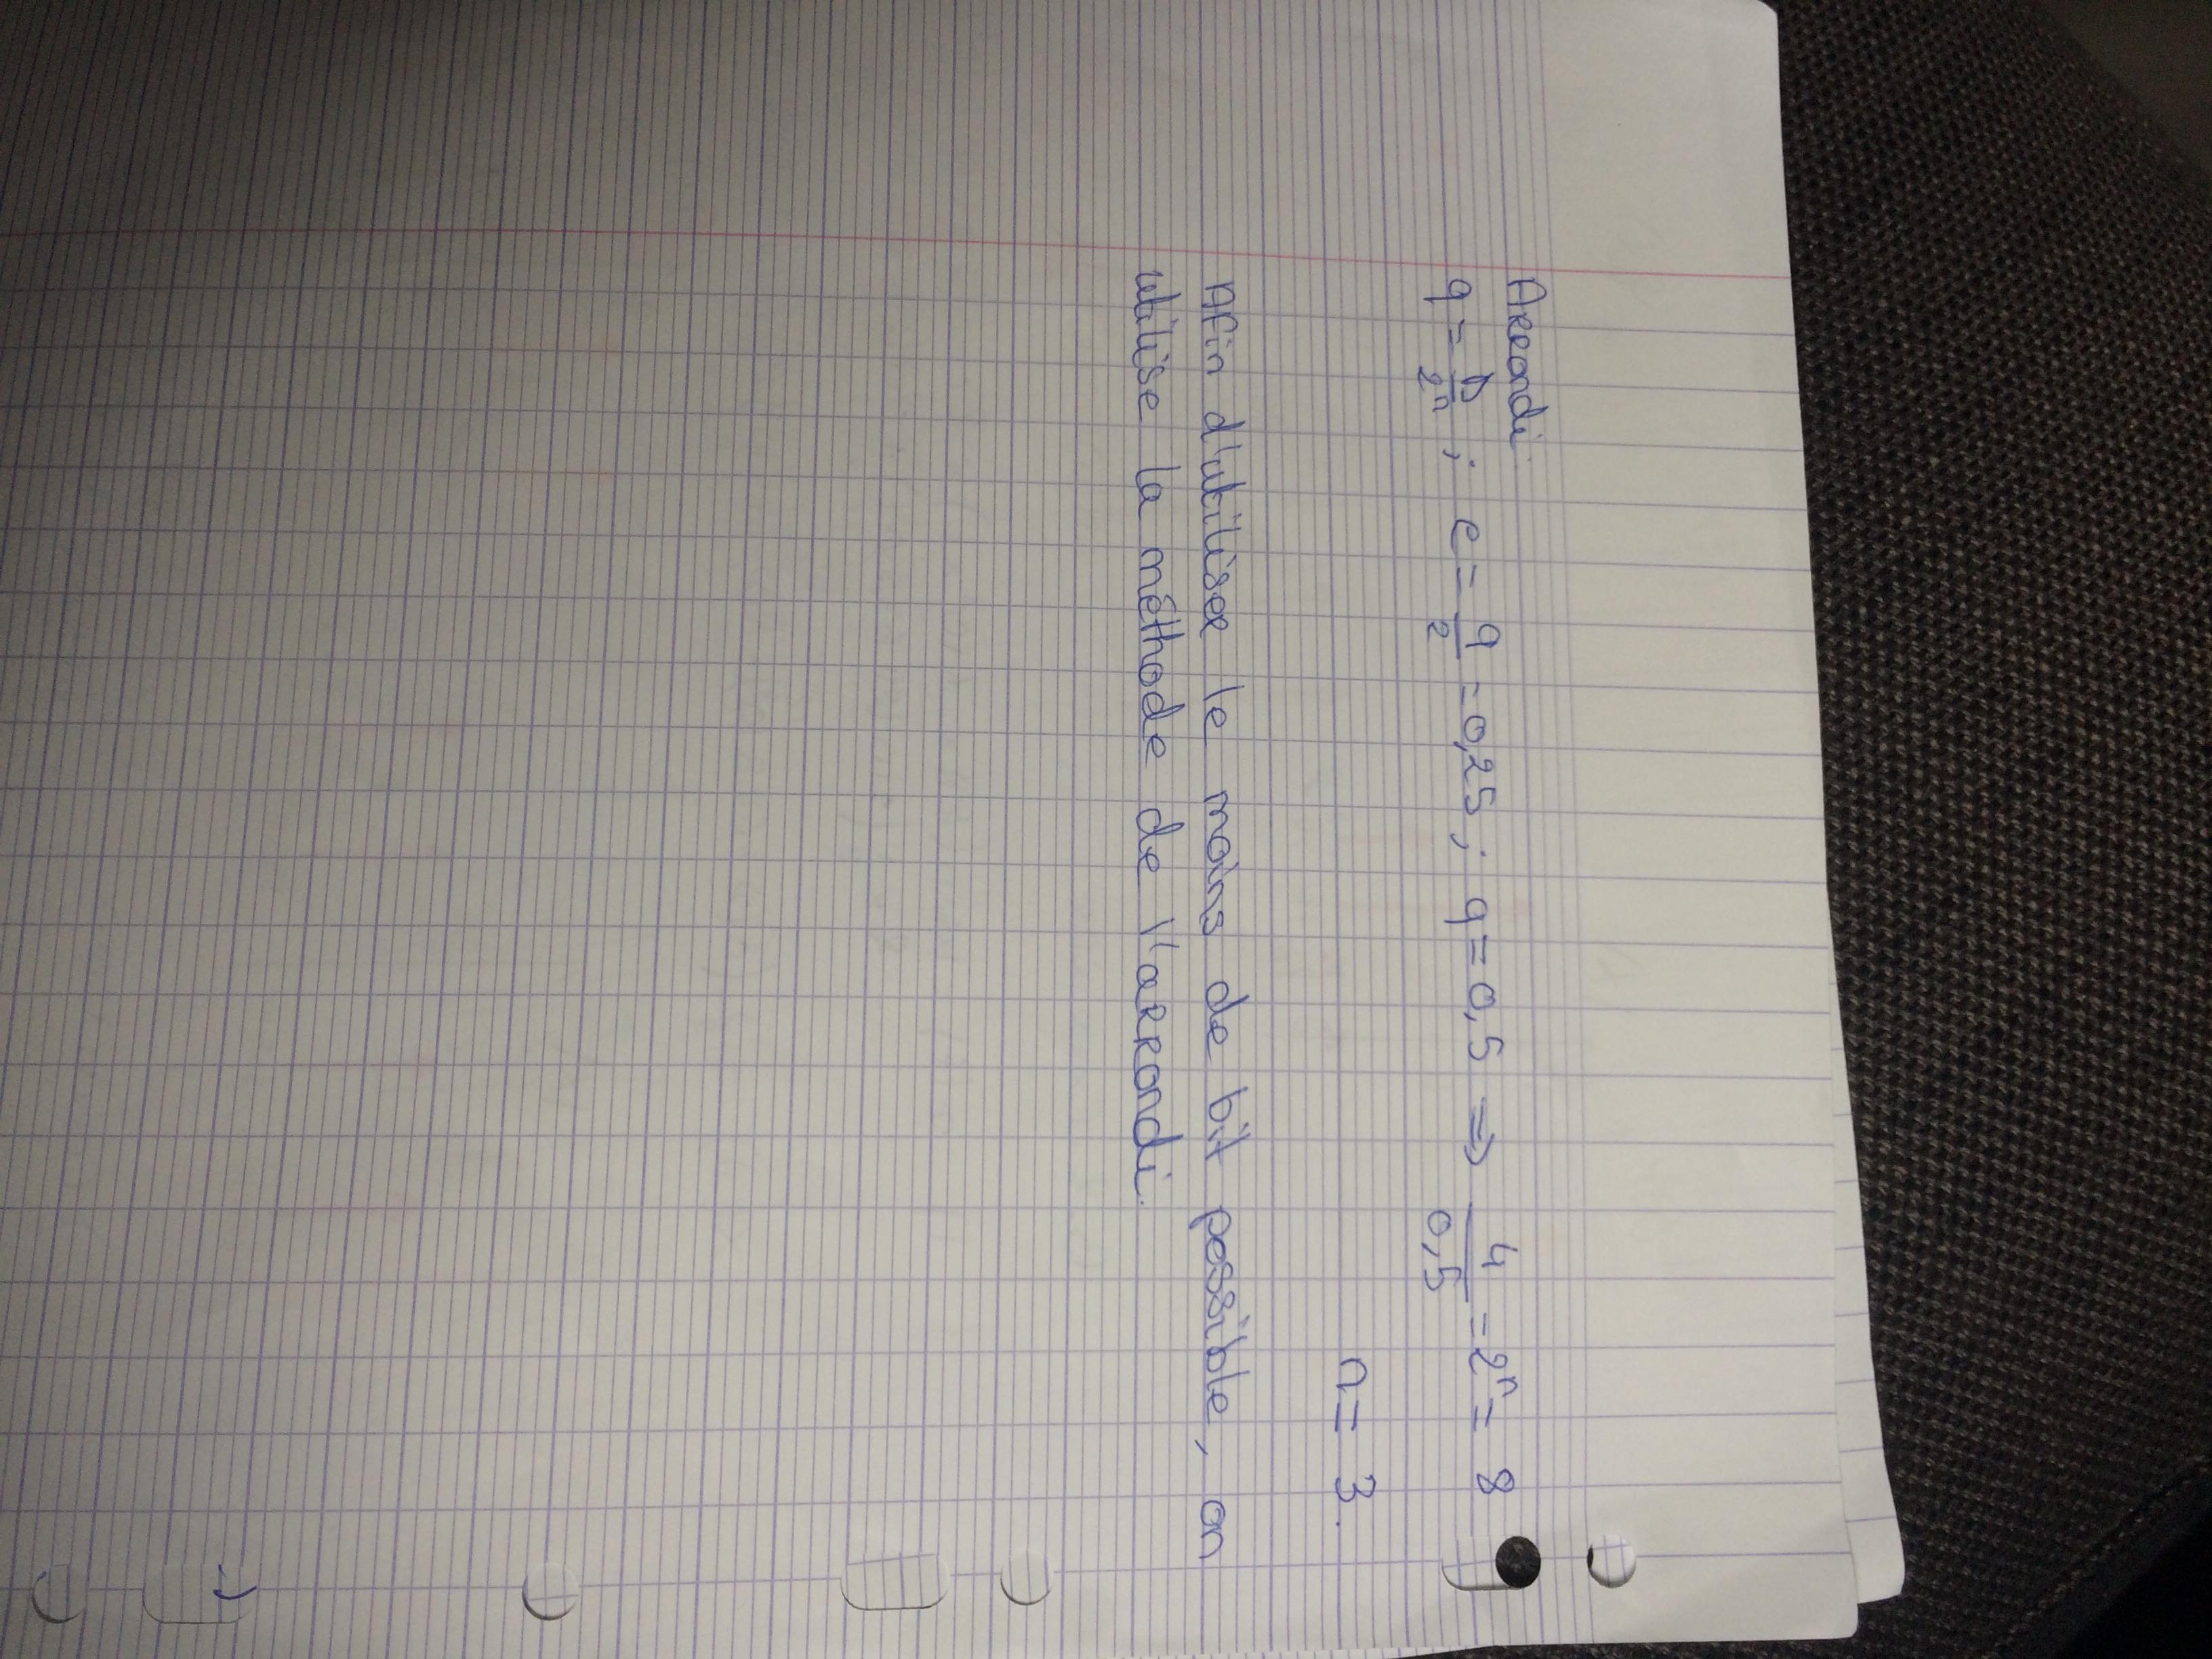 Arrondi
q = D/2ⁿ ; e = q/2 = 0,25 ; q = 0,5 ⇒ 4/0,5 = 2ⁿ = 8
n = 3.
Afin d'utiliser le moins de bit possible, on
utilise la méthode de l'arrondi.